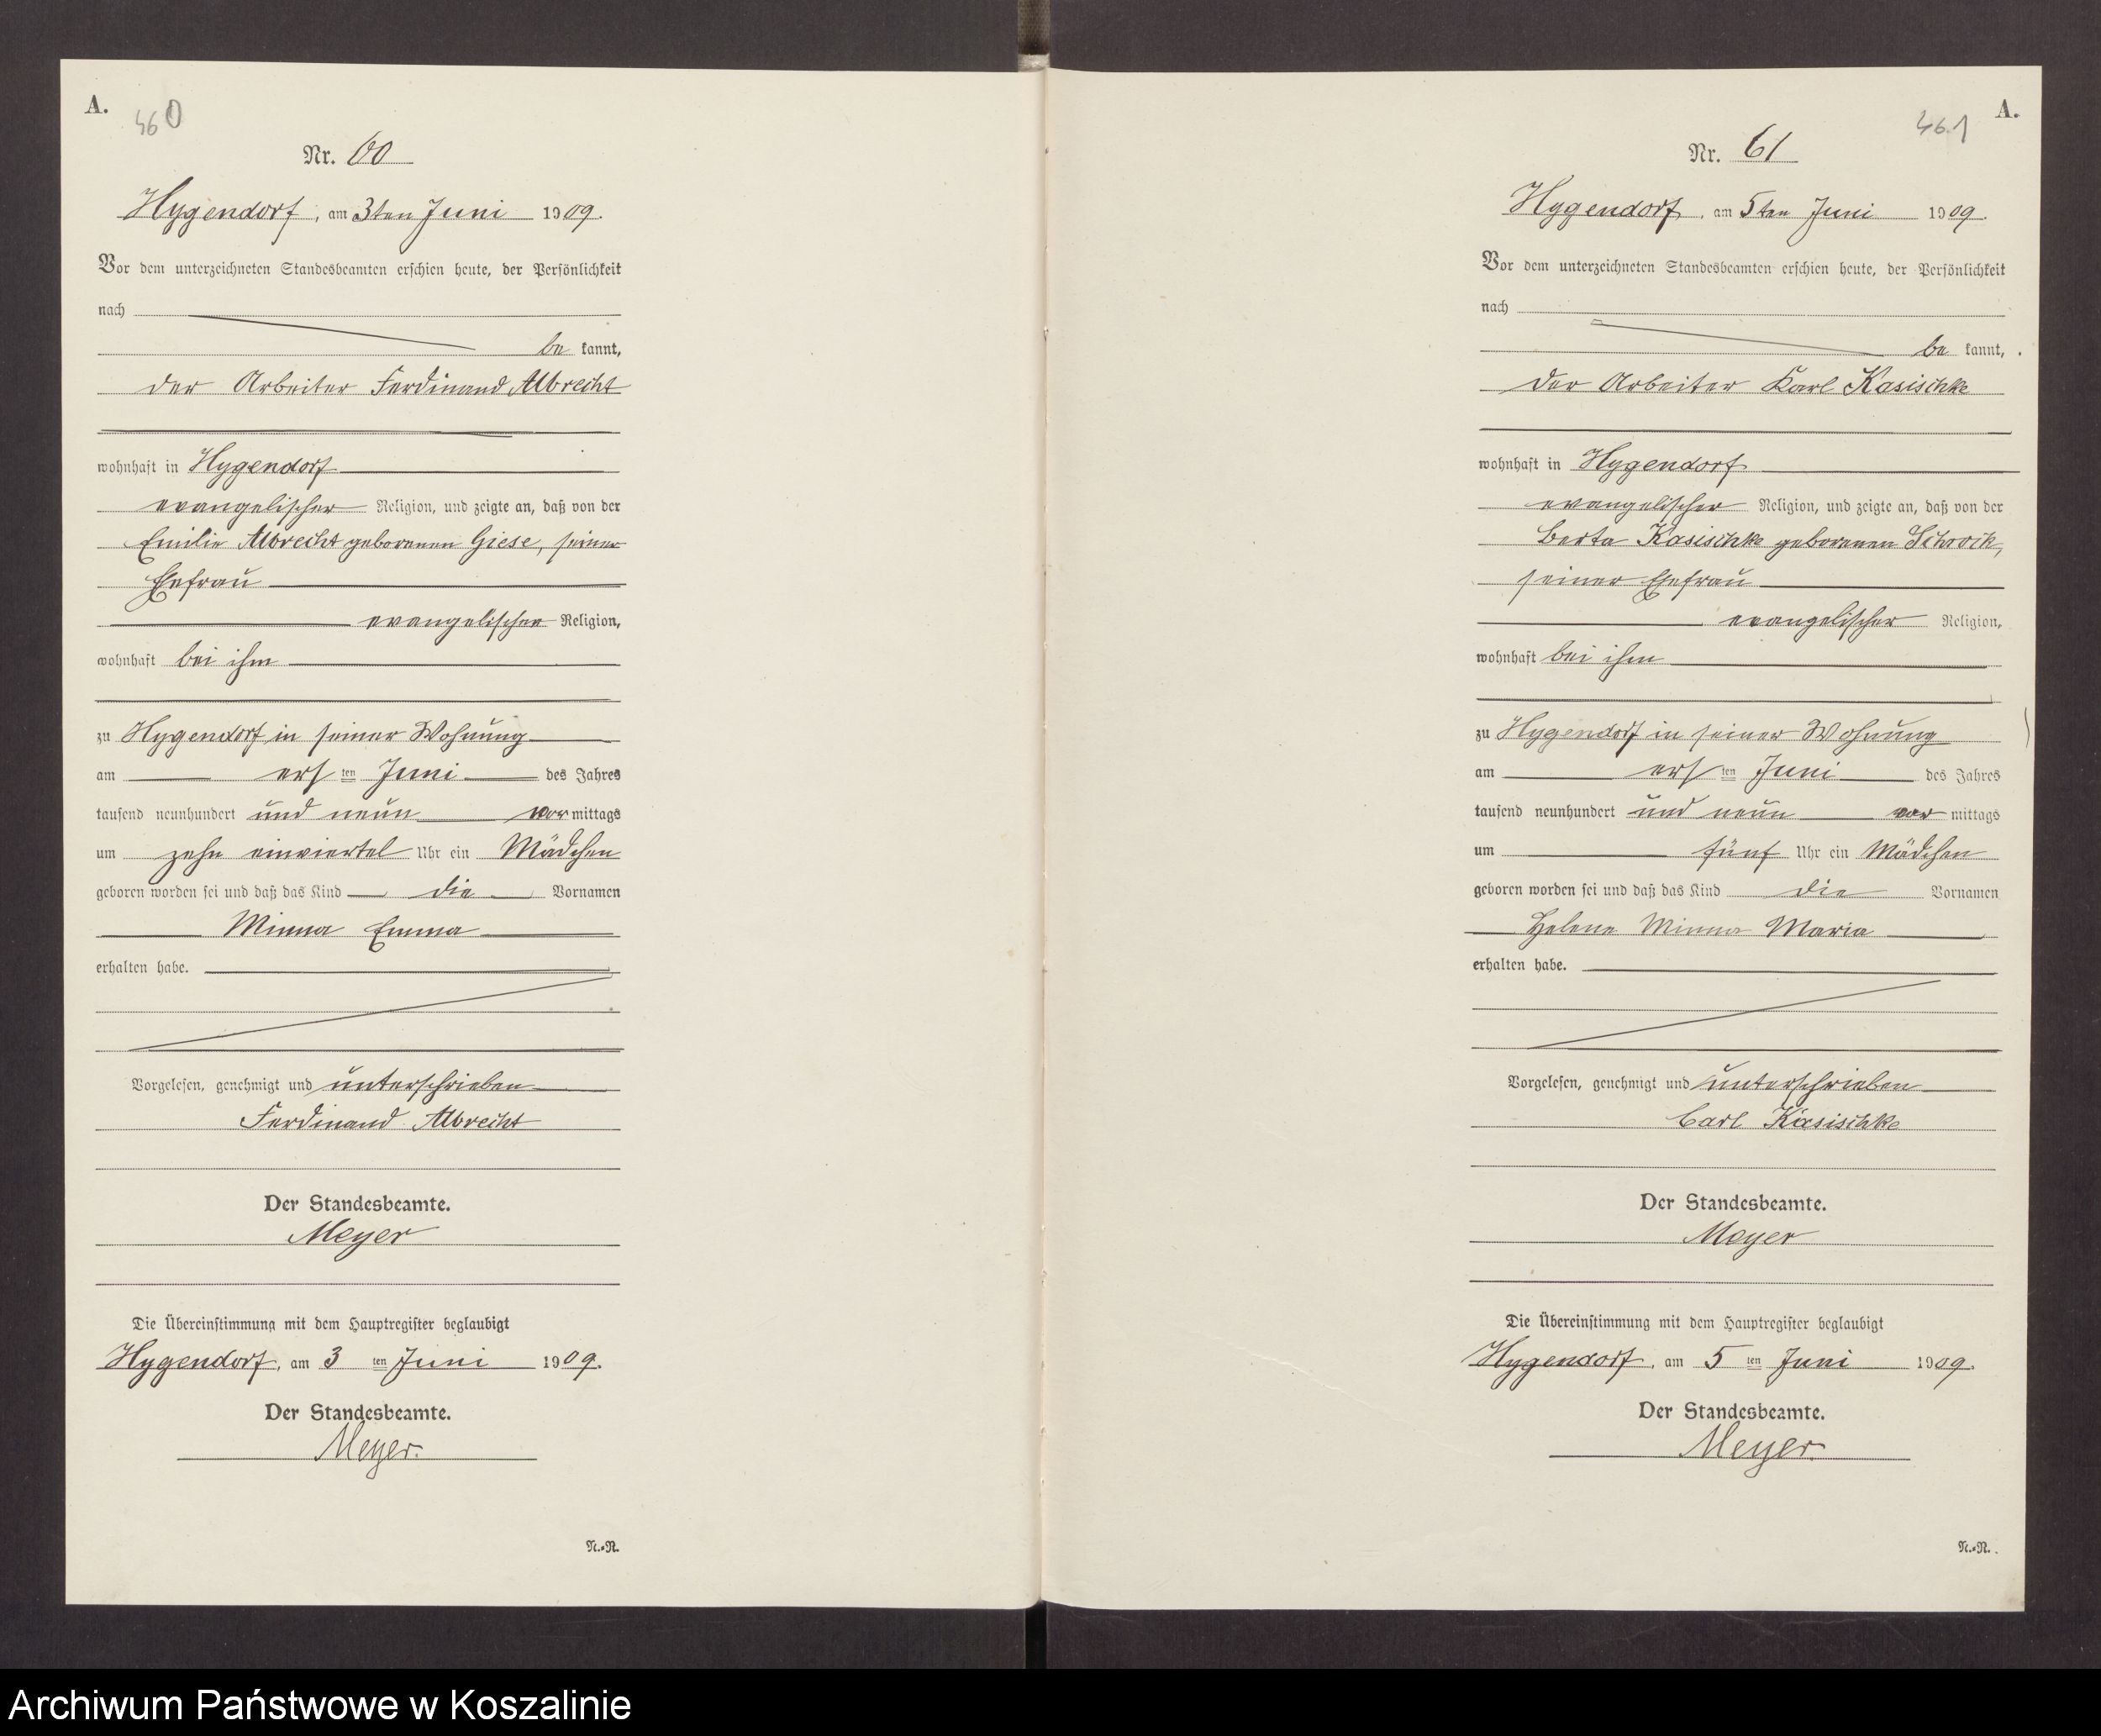 A.
460
Nr. 60
Hygendorf, am 3ten Juni 1909.
Vor dem unterzeichneten Standesbeamten erschien heute, der Persönlichkeit
nach
be kannt,
der Arbeiter Ferdinand Albrecht
wohnhaft in Hygendorf
evangelischer Religion, und zeigte an, daß von der
Emilie Albrecht geborenen Giese, seiner
Ehefrau
evangelischer Religion,
wohnhaft bei ihm
zu Hygendorf in seiner Wohnung
am ersten Juni des Jahres
tausend neunhundert und neun vormittags
um zehn einviertel Uhr ein Mädchen
geboren worden sei und daß das Kind die Vornamen
Minna Emma
erhalten habe.
Vorgelesen, genehmigt und unterschrieben
Ferdinand Albrecht
Der Standesbeamte.
Meyer
Die Übereinstimmung mit dem Hauptregister beglaubigt
Hygendorf, am 3ten Juni 1909.
Der Standesbeamte.
Meyer.
N.=R.
A.
461
Nr. 61
Hygendorf, am 5ten Juni 1909.
Vor dem unterzeichneten Standesbeamten erschien heute, der Persönlichkeit
nach
be kannt,
der Arbeiter Karl Kasischke
wohnhaft in Hygendorf
evangelischer Religion, und zeigte an, daß von der
Berta Kasischke geborenen Schrock,
seiner Ehefrau
evangelischer Religion,
wohnhaft bei ihm
zu Hygendorf in seiner Wohnung
am ersten Juni des Jahres
tausend neunhundert und neun vormittags
um fünf Uhr ein Mädchen
geboren worden sei und daß das Kind die Vornamen
Helene Minna Maria
erhalten habe.
Vorgelesen, genehmigt und unterschrieben
Carl Kasischke
Der Standesbeamte.
Meyer
Die Übereinstimmung mit dem Hauptregister beglaubigt
Hygendorf, am 5ten Juni 1909.
Der Standesbeamte.
Meyer.
N.=R.
Archiwum Państwowe w Koszalinie